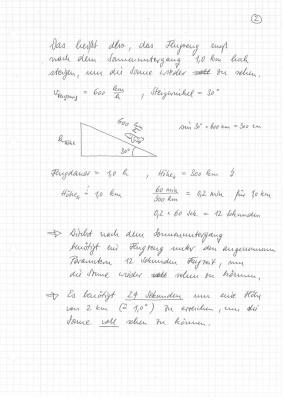 2
Das heißt also, das Flugzeug muß
nach dem Sonnenuntergang 1,0 km hoch
steigen, um die Sonne wieder zu sehen.
VFlugzeug = 600 km/h , Steigwinkel = 30°
600 km
sin 30° * 600 km = 300 km
30°
Flugdauer = 1,0 h , Höhe = 300 km
Höhe = 1,0 km 60 min / 300 km = 0,2 min für 1,0 km
0,2 * 60 sek = 12 Sekunden
⇒ Direkt nach dem Sonnenuntergang
benötigt ein Flugzeug unter den angenommenen
Parametern 12 Sekunden Flugzeit, um
die Sonne wieder sehen zu können.
⇒ Es benötigt 24 Sekunden um eine Höhe
von 2 km (≙ 1,0°) zu erreichen, um die
Sonne voll sehen zu können.